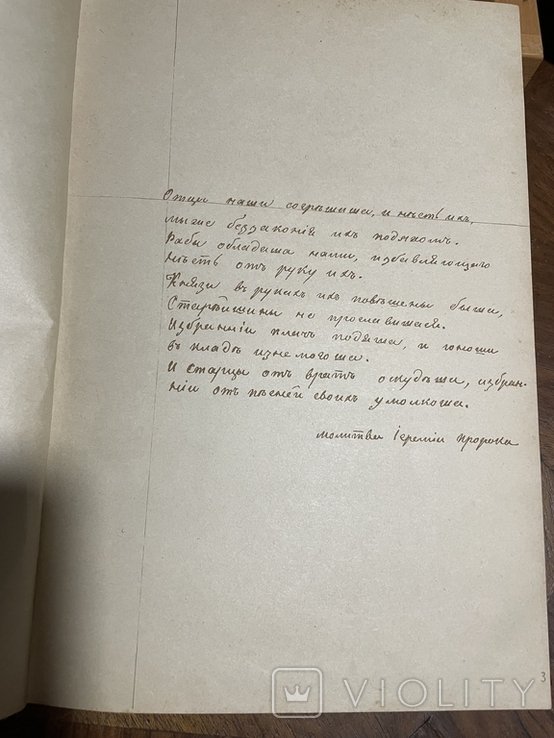 Отцы наши согрѣшиша, и нѣсть ихъ,
мы же беззаконія ихъ подъяхомъ.
Раби обладаша нами, избавляющаго
нѣсть отъ руку ихъ.
Князи въ рукахъ ихъ повѣшены быша,
Старѣйшины не прославишася.
Избранніи плачъ подъяша, и юноши
въ кладѣ изнемогоша.
И старцы отъ вратъ оскудѣша, избран-
ніи отъ пѣсней своихъ умолкоша.
Молитва Іереміи пророка
3
VIOLITY